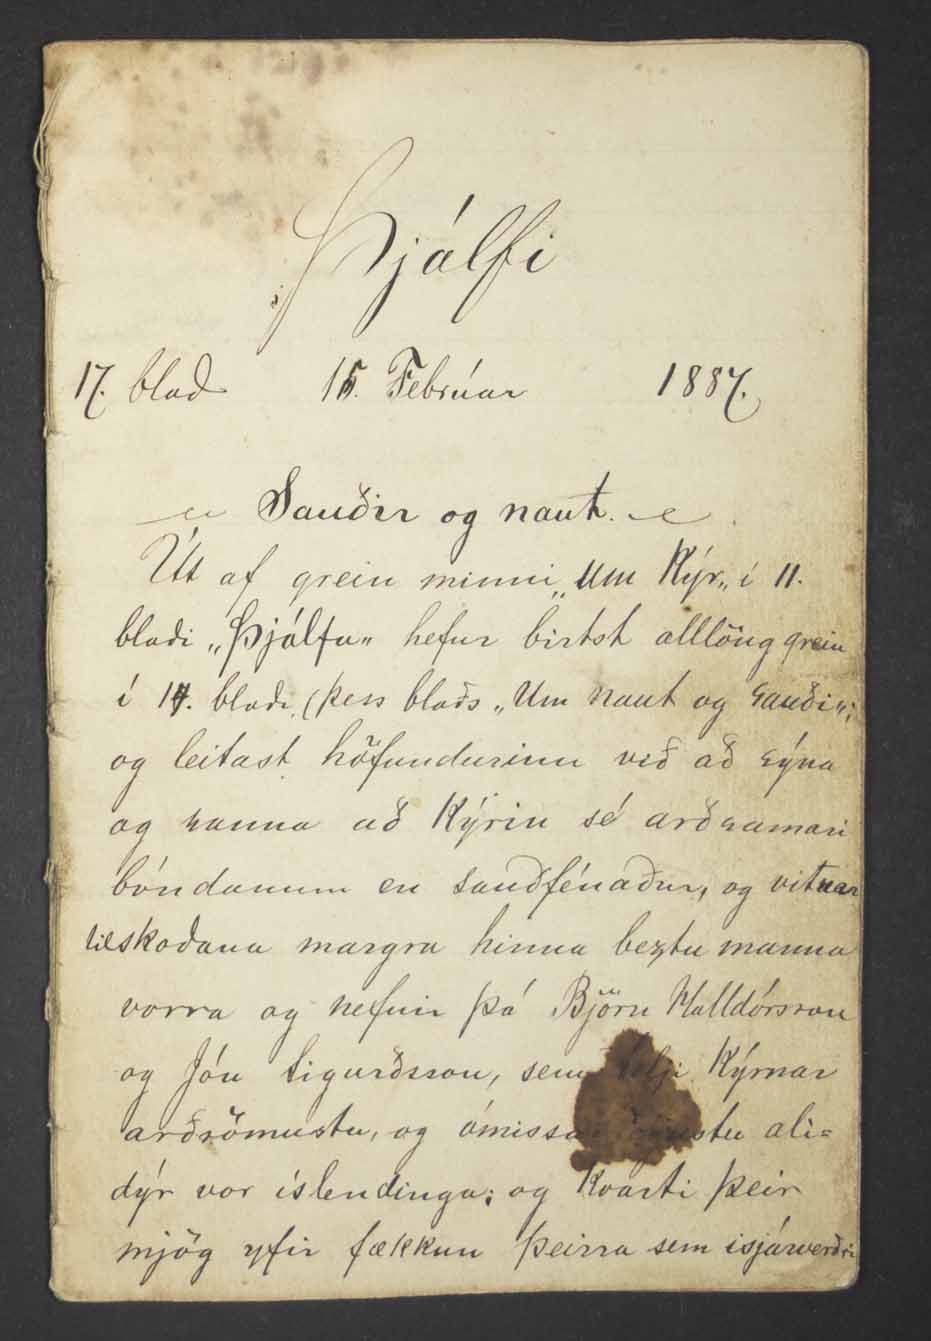 Þjálfi
17. blað 15. Febrúar 1887.
Sauðir og naut.
Út af grein minni „Um Kýr„ í 11.
blaði „Þjálfa„ hefur birtst alllöng grein
í 14. blaði (þess blaðs „Um naut og sauði„;
og leitast höfundurinn við að sýna
og sanna að Kýrin sé arðsamari
bóndanum en sauðfénaður, og vitnar
til skoðana margra hinna beztu manna
vorra og nefnir þá Björn Halldórsson
og Jón Sigurðsson, sem telji Kýrnar
arðsömustu, og ómissandi ali=
dýr vor íslendinga; og Kvarti þeir
mjög yfir fækkun þeirra sem ísjárverðri